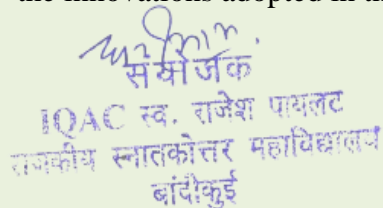 the innovations adopted in th
संयोजक
IQAC स्व. राजेश पायलट
राजकीय स्नातकोत्तर महाविद्यालय
बांदीकुई